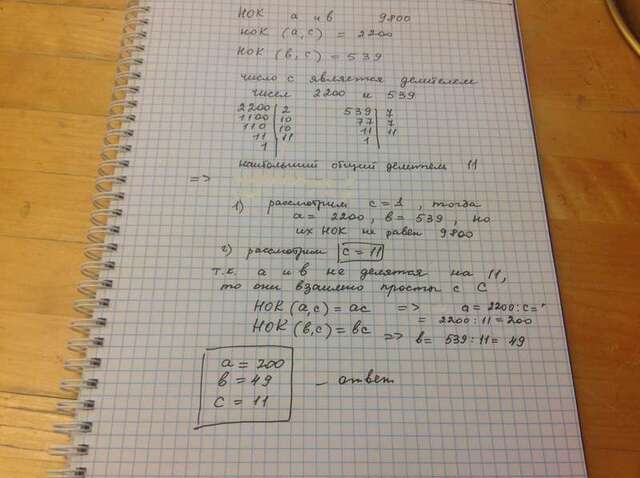 НОК а и в 9800
НОК (а,с) = 2200
НОК (в,с) = 539
число с является делителем
чисел 2200 и 539
2200 | 2 539 | 7
1100 | 10 77 | 7
110 | 10 11 | 11
11 | 11 1
1
наибольший общий делитель 11
=>
1) рассмотрим с = 1, тогда
а = 2200, в = 539, но
их НОК не равен 9800
2) рассмотрим с = 11
т.к. а и в не делятся на 11,
то они взаимно просты с с
НОК (а,с) = ас => а = 2200 : с =
= 2200 : 11 = 200
НОК (в,с) = вс => в = 539 : 11 = 49
а = 200
в = 49 – ответ
с = 11